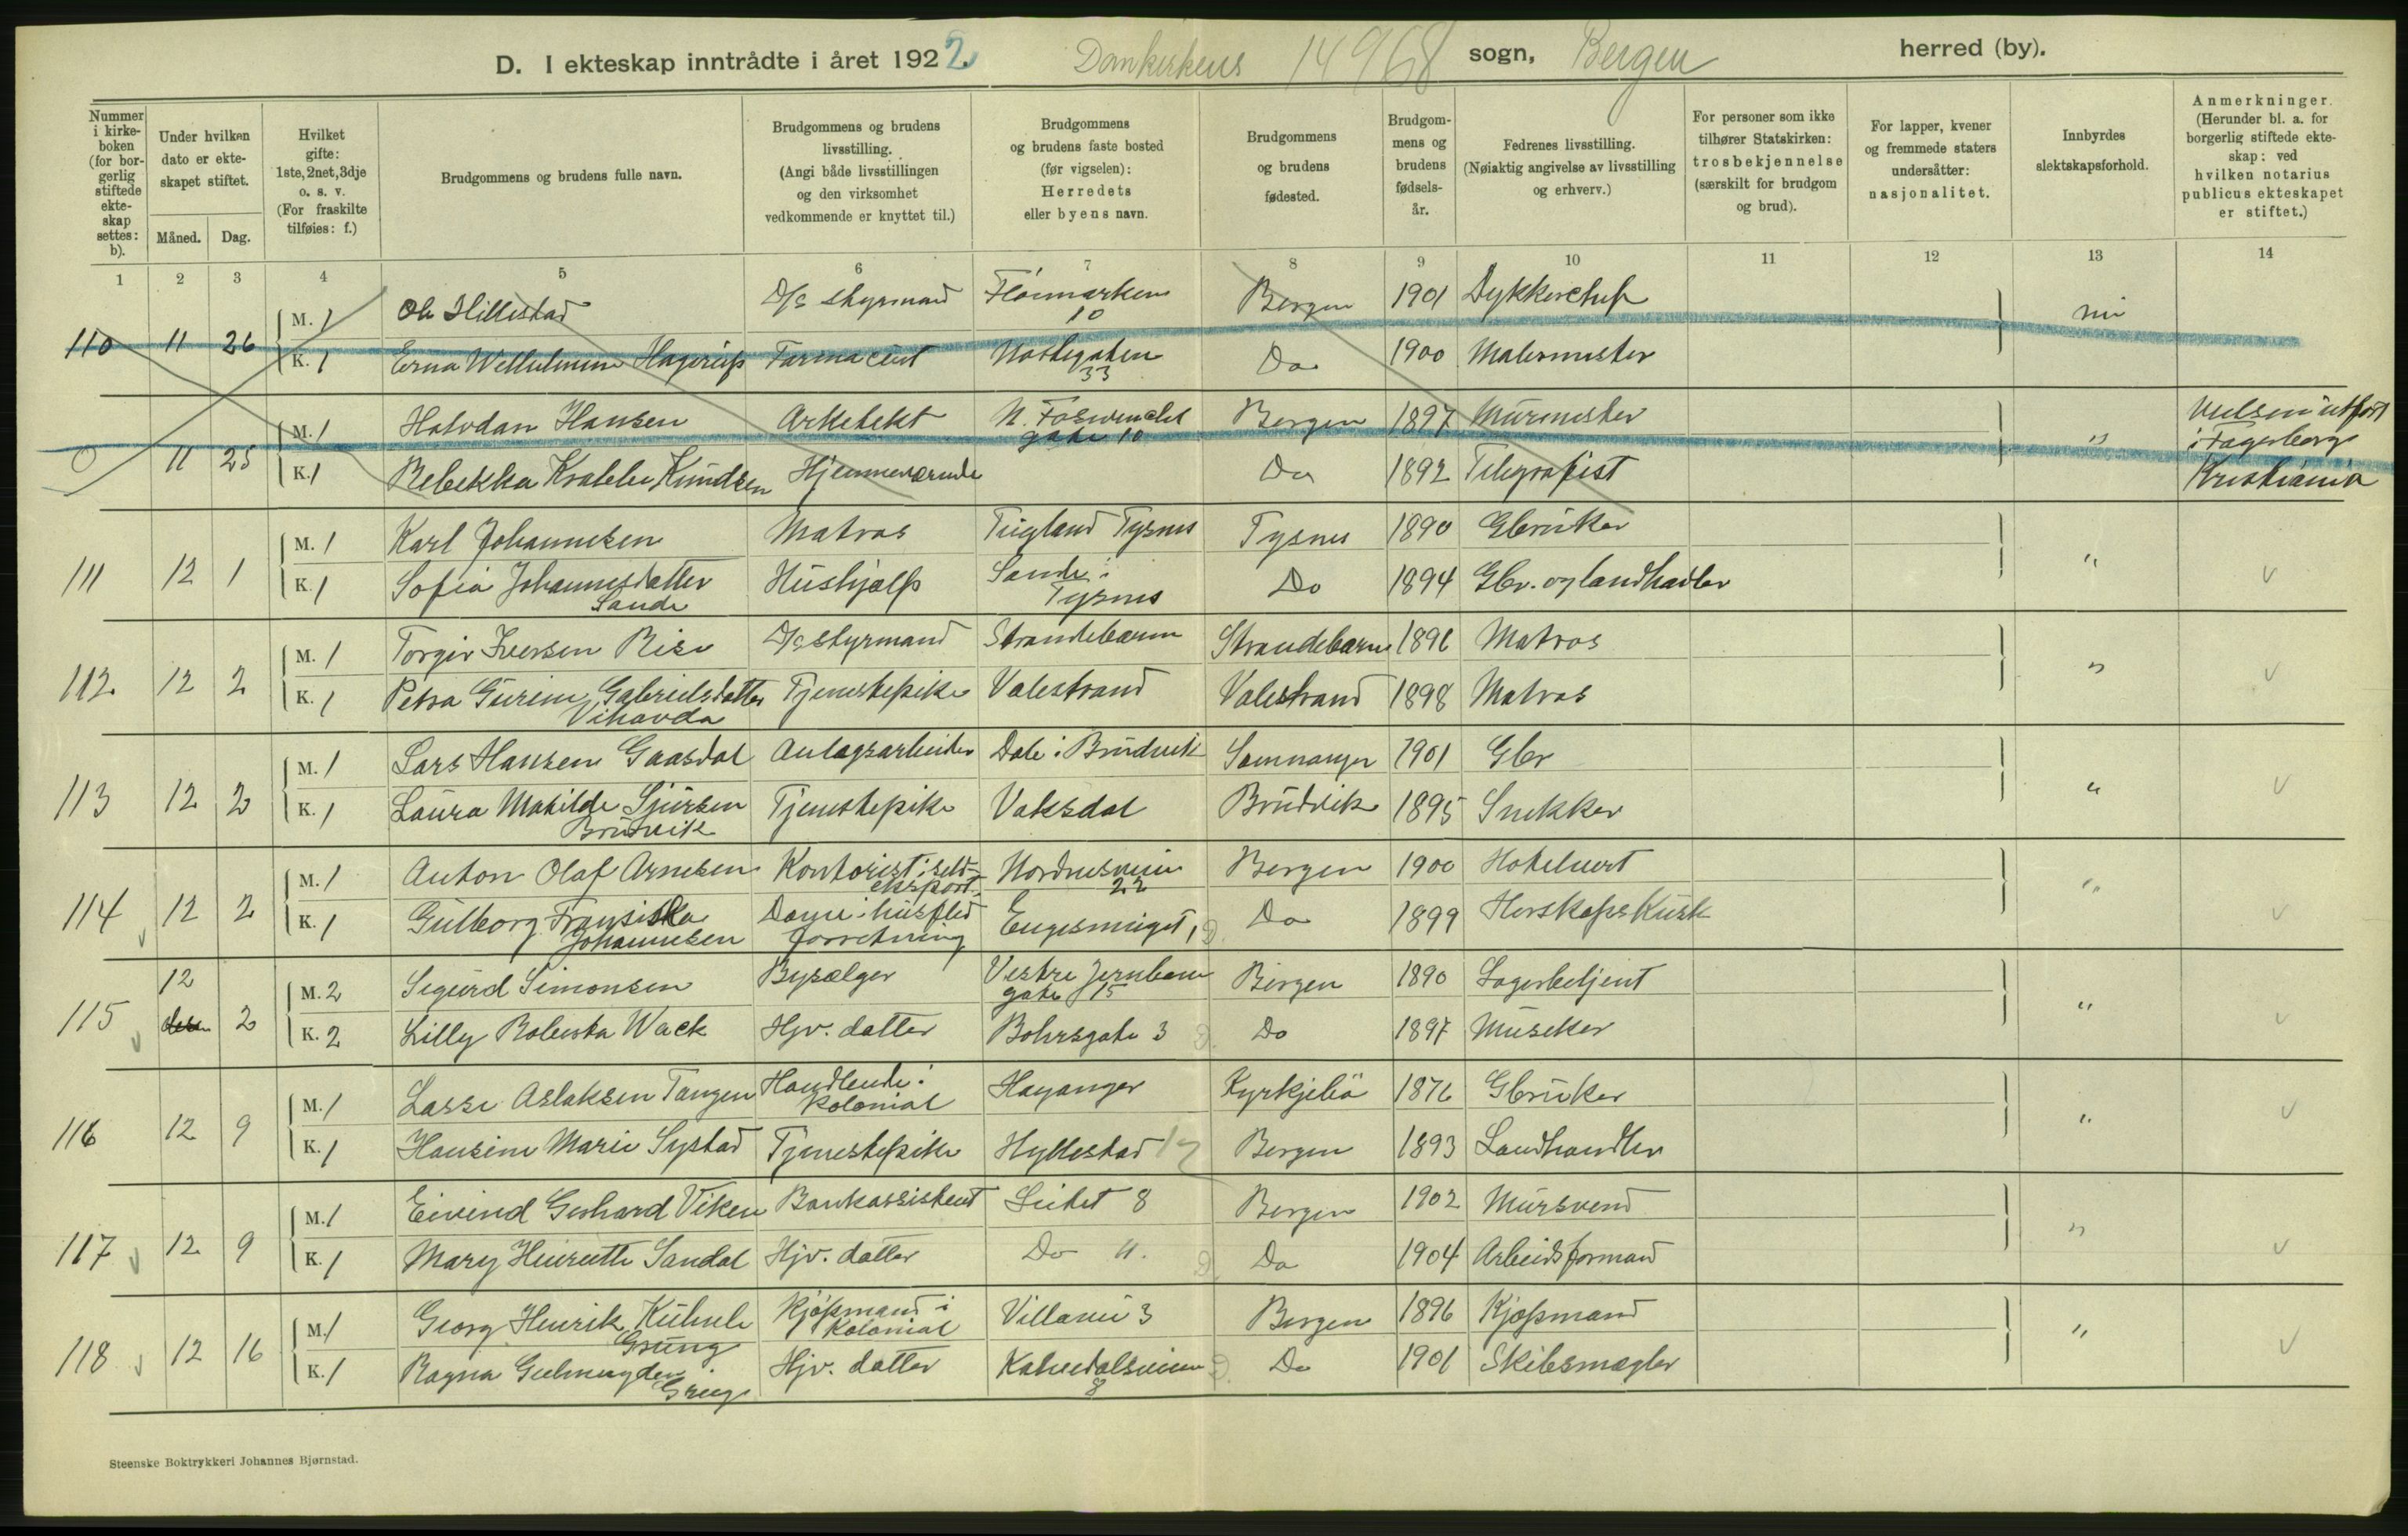 D. I ekteskap inntrådte i året 1922. Domkirkens 14968 sogn, Bergen herred (by).
Nummer i kirkeboken (for borgerlig stiftede ekteskap settes: b).
Under hvilken dato er ekteskapet stiftet.
Måned. Dag.
Hvilket gifte: 1ste, 2net, 3dje o. s. v. (For fraskilte tilføies: f.)
Brudgommens og brudens fulle navn.
Brudgommens og brudens livsstilling. (Angi både livsstillingen og den virksomhet vedkommende er knyttet til.)
Brudgommens og brudens faste bosted (før vigselen): Herredets eller byens navn.
Brudgommens og brudens fødested.
Brudgommens og brudens fødselsår.
Fedrenes livsstilling. (Nøiaktig angivelse av livsstilling og erhverv.)
For personer som ikke tilhører Statskirken: trosbekjennelse (særskilt for brudgom og brud).
For lapper, kvener og fremmede staters undersåtter: nasjonalitet.
Innbyrdes slektskapsforhold.
Anmerkninger. (Herunder bl. a. for borgerlig stiftede ekteskap: ved hvilken notarius publicus ekteskapet er stiftet.)
1 2 3 4 5 6 7 8 9 10 11 12 13 14
110 11 26 M. 1 Ole Hillestad D/s styrmand Fløimarken 10 Bergen 1901 Dykkerchef nei
K. 1 Erna Wilhelmine Hagerup Farmaceut Nøstegaten 33 Do 1900 Malermester
0 11 25 M. 1 Halvdan Hansen Arkitekt N. gate 10 Bergen 1897 Murmester " Vielsen utført i Fagerborg Kristiania
K. 1 Rebekka Krabbe Knudsen Hjemmeværende Do 1892 Telegrafist
111 12 1 M. 1 Karl Johannesen Matros Tysnes Tysnes 1890 Gbruker " v
K. 1 Sofia Johannesdatter Sande Hushjælp Sande i Tysnes Do 1894 Gbr. og landhadler
112 12 2 M. 1 Torgir Iversen Risa D/s styrmand Strandebarm Strandebarm 1896 Matros " v
K. 1 Petra Gurine Gabrielsdatter Vihovda Tjenestepike Valestrand Valestrand 1898 Matros
113 12 2 M. 1 Lars Hansen Gaasdal Anlægsarbeider Dale i Bruvik Samnanger 1901 Gbr " v
K. 1 Laura Matilde Sjursen Bruvik Tjenestepike Vaksdal Bruvik 1895 Snekker
114 v 12 2 M. 1 Anton Olaf Arnesen Kontorist i sild-eksport Nordnesveien 22 Bergen 1900 Hotelvert " v
K. 1 Gulborg Fransiska Johannesen Dame i husflid forretning Engesmuget 1 D. Do 1899 Herskapskusk
115 v 12 2 M. 2 Sigurd Simonsen Bysælger Vestre Jernbane gate 15 Bergen 1890 Lagerbetjent " v
K. 2 Lilly Roberta Wack Hjv. datter Bohrsgate 3 D. Do 1897 Musiker
116 12 9 M. 1 Lasse Aslaksen Tangen Handlende i kolonial Høyanger Kyrkjebø 1876 Gbruker " v
K. 1 Hansine Marie Systad Tjenestepike Hyllestad Bergen 1893 Landhandler
117 v 12 9 M. 1 Eivind Gerhard Viken Bankassistent Leitet 8 Bergen 1902 Mursvend " v
K. 1 Mary Henriette Sandal Hjv. datter Do 11. D. Do 1904 Arbeidsformand
118 v 12 16 M. 1 Georg Henrik Kuhnle Grung Kjøpmand i kolonial Villavei 3 Bergen 1896 Kjøpmand " v
K. 1 Ragna Grieg Hjv. datter Kalvedalsveien 8 D. Do 1901 Skibsmægler
Steenske Boktrykkeri Johannes Bjørnstad.